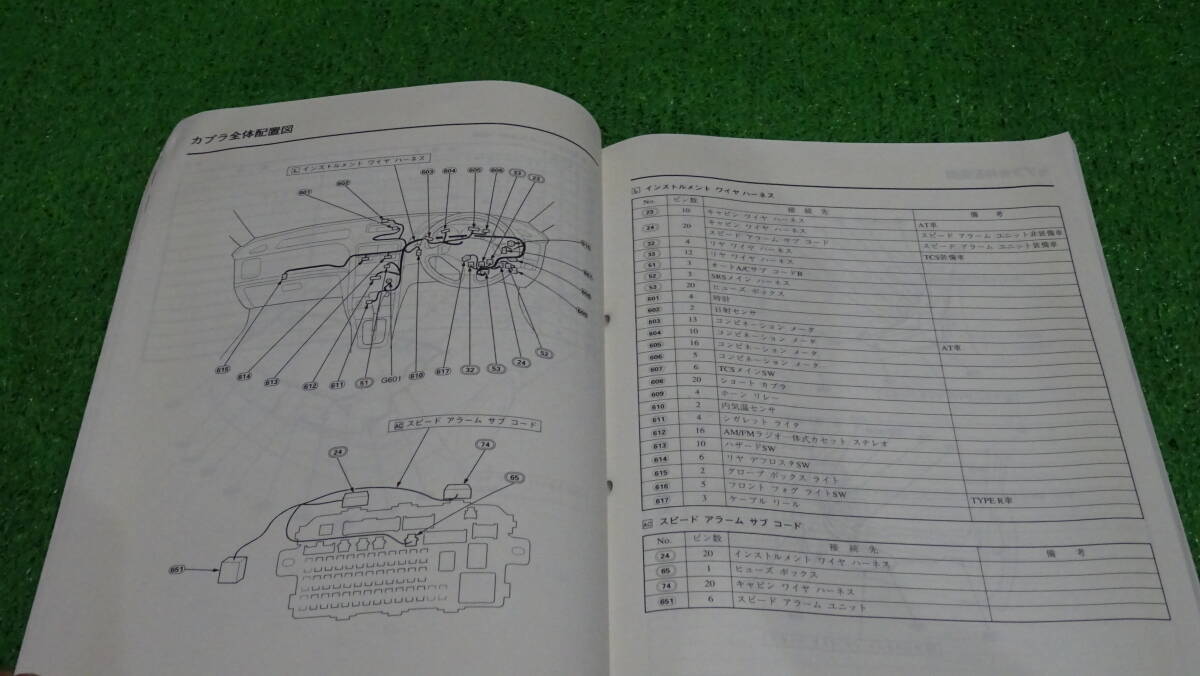 カプラ全体配置図
IL インストルメント ワイヤ ハーネス
601
602
603 604 605 606 53 23
615 614 613 612 611 51 G601 610 617 32 53 24 52
AC スピード アラーム サブ コード
24
74
65
651
インストルメント ワイヤ ハーネス
No. ピン数 接続先 備考
23 10 キャビン ワイヤ ハーネス AT車
24 20 キャビン ワイヤ ハーネス スピード アラーム ユニット非装備車
スピード アラーム サブ コード スピード アラーム ユニット装備車
32 4 リヤ ワイヤ ハーネス TCS装備車
33 12 リヤ ワイヤ ハーネス
51 3 オートA/Cサブ コードB
52 3 SRSメイン ハーネス
53 20 ヒューズ ボックス
601 4 時計
602 2 日射センサ
603 13 コンビネーション メータ
604 10 コンビネーション メータ
605 16 コンビネーション メータ AT車
606 5 コンビネーション メータ
607 6 TCSメインSW
608 20 ショート カプラ
609 4 ホーン リレー
610 2 内気温センサ
611 4 シガレット ライタ
612 16 AM/FMラジオ一体式カセット ステレオ
613 10 ハザードSW
614 6 リヤ デフロスタSW
615 2 グローブ ボックス ライト
616 5 フロント フォグ ライトSW
617 3 ケーブル リール TYPE R車
AC スピード アラーム サブ コード
No. ピン数 接続先 備考
24 20 インストルメント ワイヤ ハーネス
65 1 ヒューズ ボックス
74 20 キャビン ワイヤ ハーネス
651 6 スピード アラーム ユニット